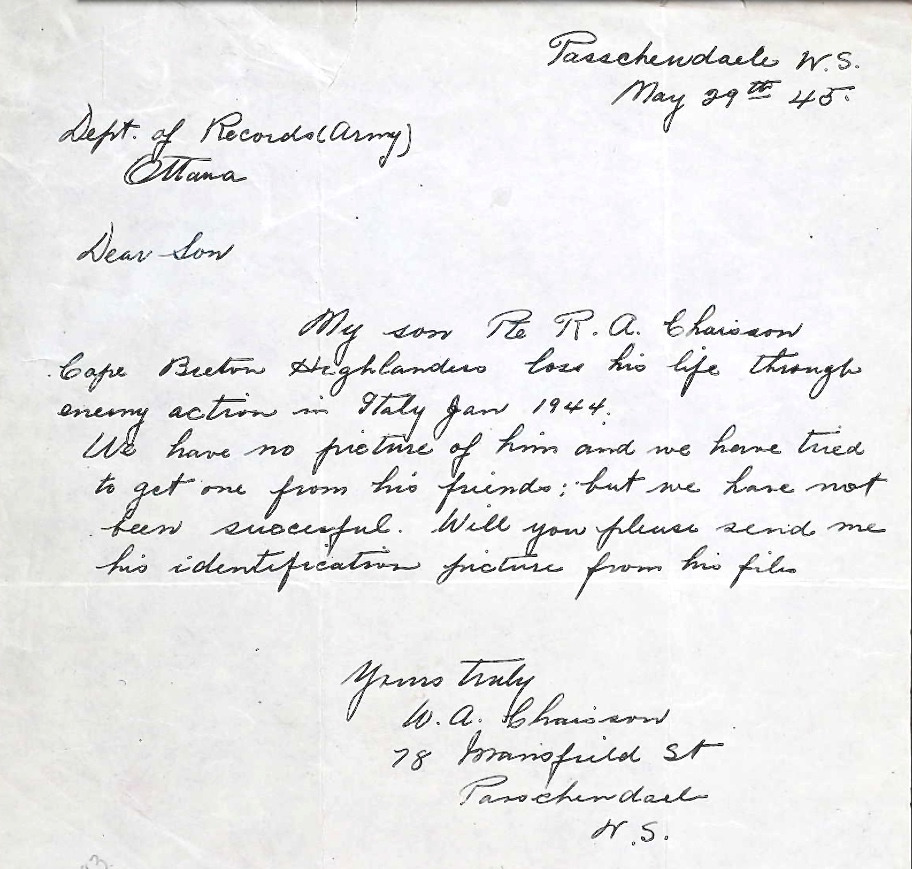 Passchendaele N.S.
May 29th 45.
Dept. of Records (Army)
Ottawa
Dear Son
My son Pte R. A. Chaisson
Cape Breton Highlanders loss his life through
enemy action in Italy Jan 1944.
We have no picture of him and we have tried
to get one from his friends; but we have not
been succesful. Will you please send me
his identification picture from his files
Yours truly
W. A. Chaisson
78 Mansfield St
Passchendael
N.S.